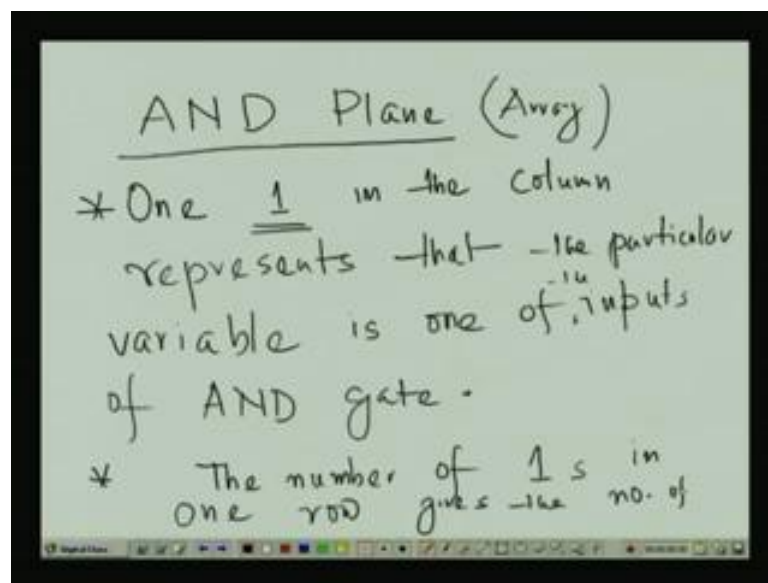 AND Plane (Array)
* One 1 in the column
represents that the particular
variable is one of the inputs
of AND gate.
* The number of 1s in
one row gives the no. of